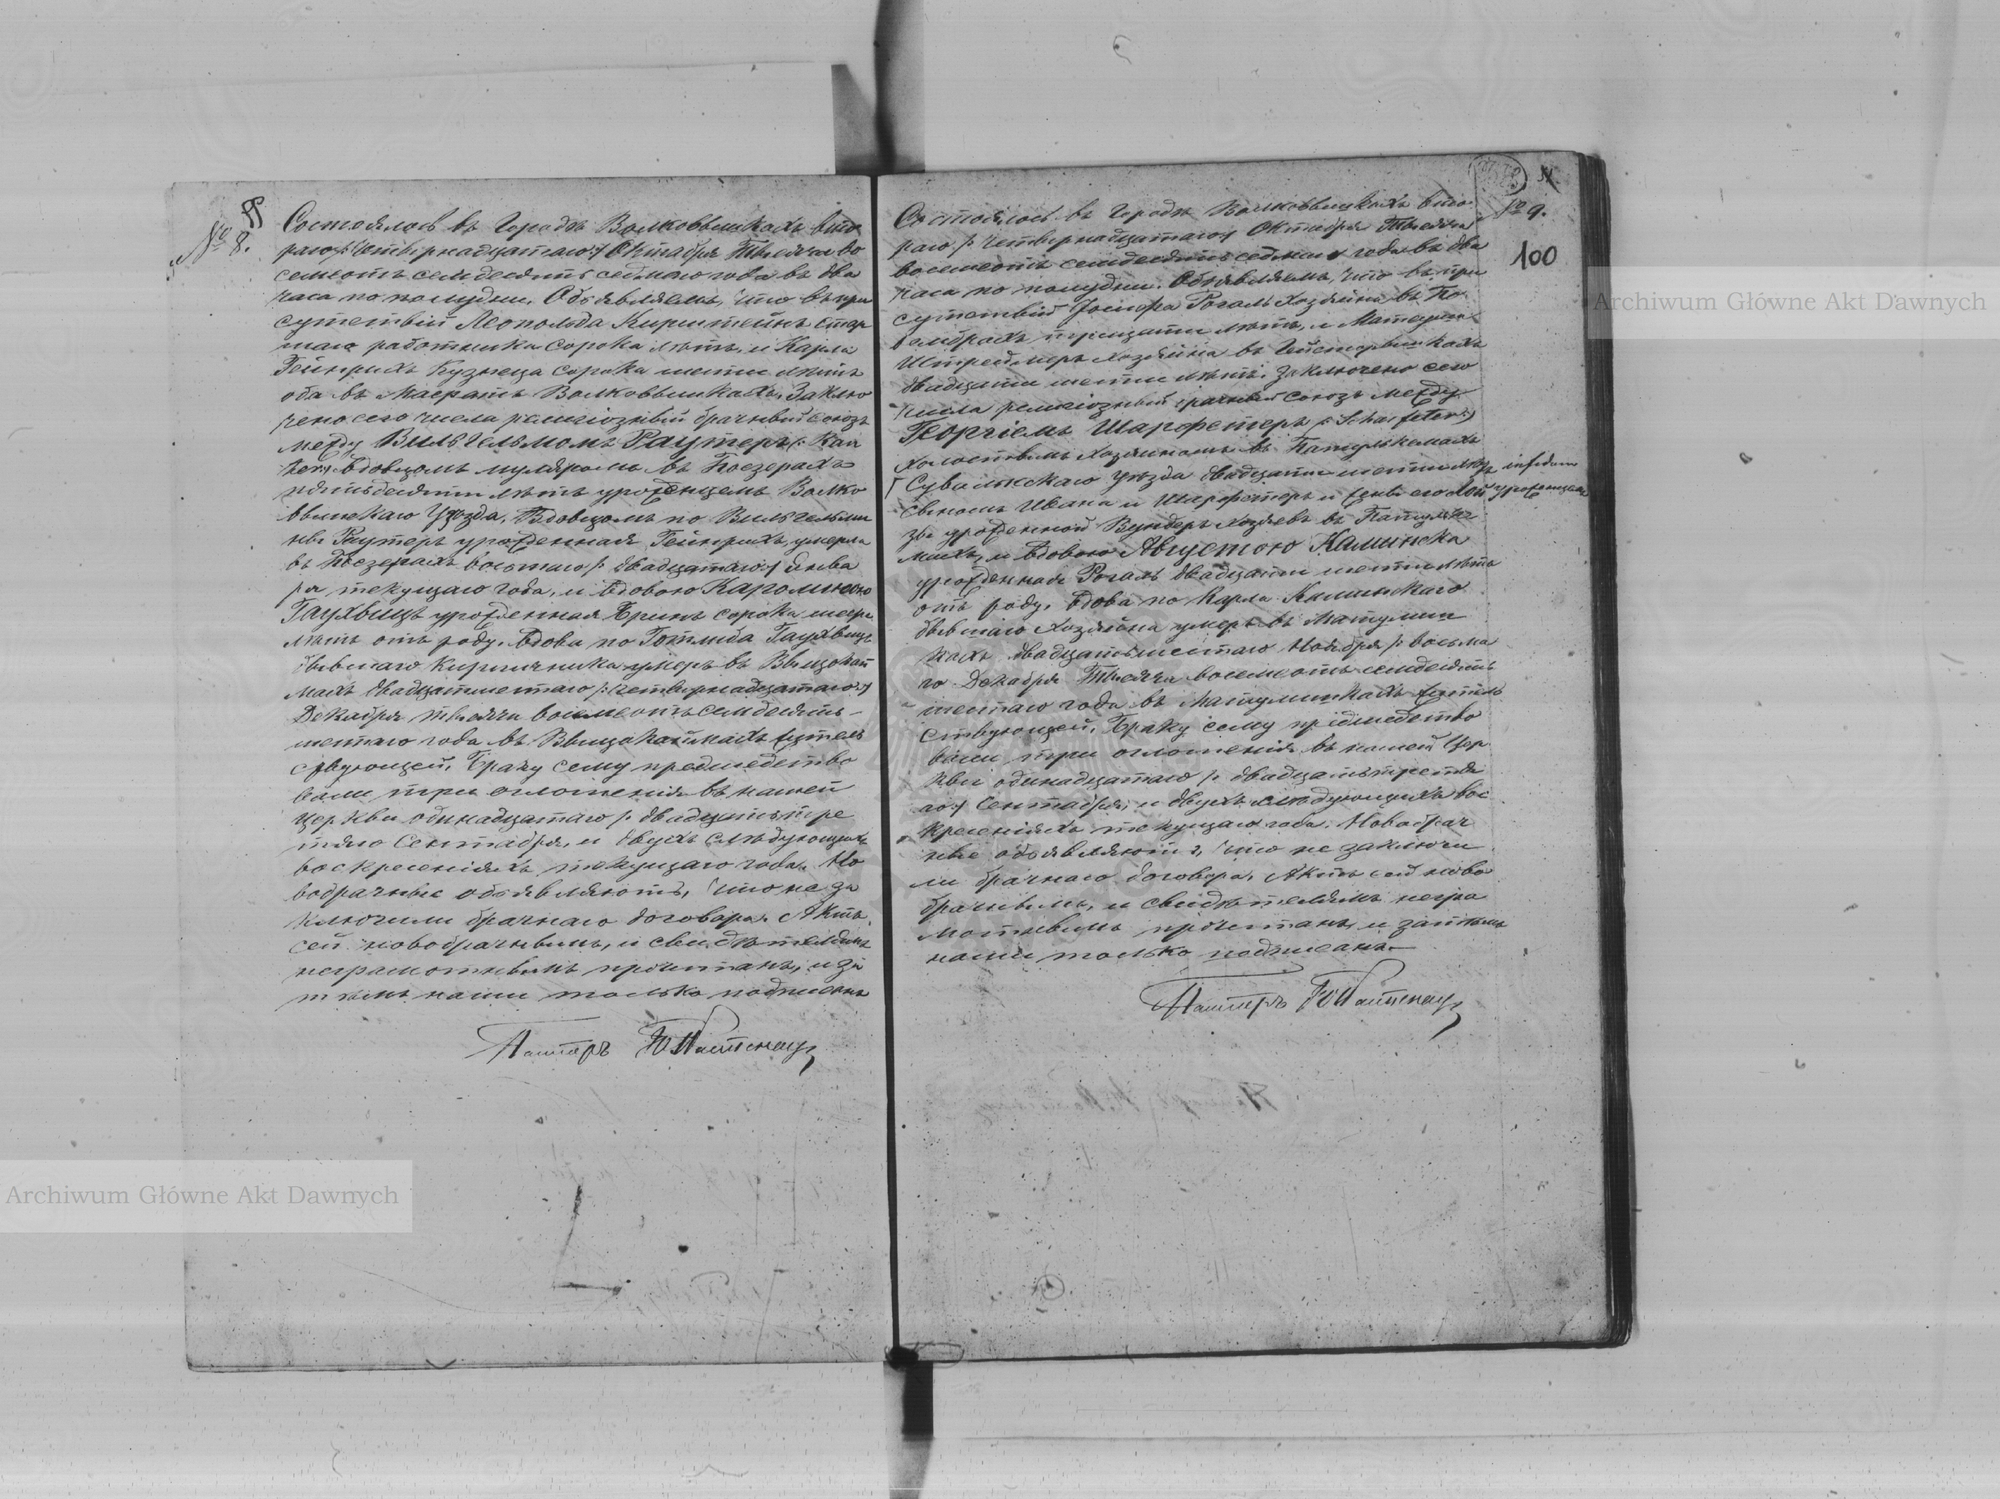 № 8.
Состоялось в Городѣ Волковышкахъ вто
раго /:четырнадцатаго:/ Октября Тысяча во
семьсотъ семьдесятъ седьмаго года въ два
часа по полудни. Объявляемъ, что въ при
сутствіи Леопольда Кирштейнъ стар
шаго работника сорока лѣтъ, и Карла
Гейнрихъ Кузнеца сорока шести лѣтъ
оба въ Маѣратъ Волковышкахъ, Заклю
чено сего числа религіозный брачный союзъ
между Вильгельмомъ Раутеръ /:Rau
ter:/ Вдовцомъ муляромъ въ Поезерахъ
пятьдесяти лѣтъ урожденцемъ Волко
вышскаго Уѣзда, Вдовцомъ по Вильгельми
нѣ Раутеръ урожденная Гейнрихъ, умерла
въ Поезерахъ восьмаго /:двадцатаго:/ Янва
ря текущаго года, и Вдовою Каролиною
Гаухвицъ урожденная Бринъ сорока шести
лѣтъ отъ роду, Вдова по Готлиба Гаухвицъ
бывшаго кирпичника умеръ въ Вышокай
махъ двадцатшестаго /:четырнадцатаго:/
Декабря тысяча восемьсотъ семьдесятъ
шестаго года въ Вышокаймахъ житель
ствующей. Браку сему предшедство
вали три оглошенія въ нашей
Церкви одинадцатаго /:двадцатьтре
тяго Сентября, и двухъ слѣдующихъ
воскресеніяхъ текущаго года. Но
вобрачные объявляютъ, что не за
ключили брачнаго договора. Актъ
сей новобрачнымъ, и свидѣтелямъ
неграмотнымъ прочитанъ, и за
тѣмъ нами только подписанъ
Пасторъ
№ 9.
100
Состоялось въ Городѣ Волковышкахъ вто
раго /:четырнадцатаго:/ Октября Тысяча
восемьсотъ семьдесятъ седьмаго года въ два
часа по полудни. Объявляемъ, что въ при
сутствіи Іосифа Рогаль Хозяина въ По
тридцати лѣтъ, и
Штреймеръ хозяина въ
двадцати шести лѣтъ. Заключено сего
числа религіозный брачный союзъ между
Георгіемъ Шарфетеръ /:Scharfeter:/
холостымъ Хозяиномъ въ Патулькемахъ
Сувалкскаго Уѣзда двадцати шести лѣтъ
урожденцемъ
сыномъ Ивана и Шарфетеръ и жены его
урожденной Вундеръ Хозяевъ въ Патулке
махъ, и Вдовою Августою Калинска
урожденная Рогаль двадцати шести лѣтъ
отъ роду, Вдова по Карла Калинскаго
бывшаго Хозяина умеръ въ Матулиш
кахъ двадцатьшестаго Ноября /:восьма
го Декабря Тысяча восемьсотъ семьдесятъ
шестаго года въ Матулишкахъ житель
ствующей. Браку сему предшедство
вали три оглошенія въ нашей Цер
кви одинадцатаго /:двадцатьтретя
го:/ Сентября, и двухъ слѣдующихъ вос
кресеніяхъ текущаго года. Новобрач
ные объявляютъ, что не заключи
ли брачнаго договора. Актъ сей ново
брачнымъ, и свидѣтелямъ негра
мотнымъ прочитанъ, и затѣмъ
нами только подписанъ
Пасторъ
Archiwum Główne Akt Dawnych
Archiwum Główne Akt Dawnych